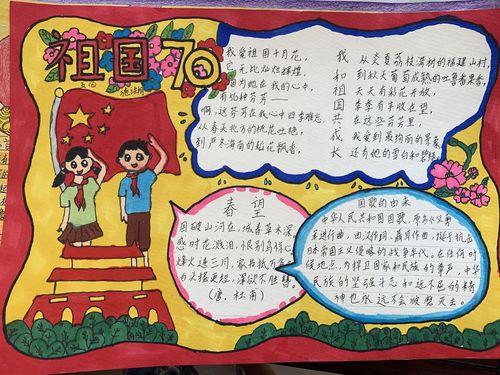 祖国70
我爱祖国十月花,
它无比灿烂辉煌,
因为她在我的心中,
有56种芬芳——
啊,这芬芳在我心中四季难忘,
从春天北方的桃花吐艳,
到严冬海南的稻花飘香,
我和祖国共成长
从炎夏荔枝满树的福建山村,
到秋天葡萄成熟的吐鲁番果香,
天天有鲜花开放,
季季有丰收在望,
在这些芬芳里,
我爱到最绚丽的是
还有她的雪白和
春望
国破山河在,城春草木深
感时花溅泪,恨别鸟惊心
烽火连三月,家书抵万金
白头搔更短,浑欲不胜簪。
(唐.杜甫)
国歌的由来
中华人民共和国国歌,原名义勇
军进行曲,由汉作词,聂耳作曲,诞于抗击
日本帝国主义侵略的战争年代。在任何时
候地点,为捍卫国家和民族的尊严,中华
民族的坚强斗志和远不邑的精
神也永远不会被磨灭去。